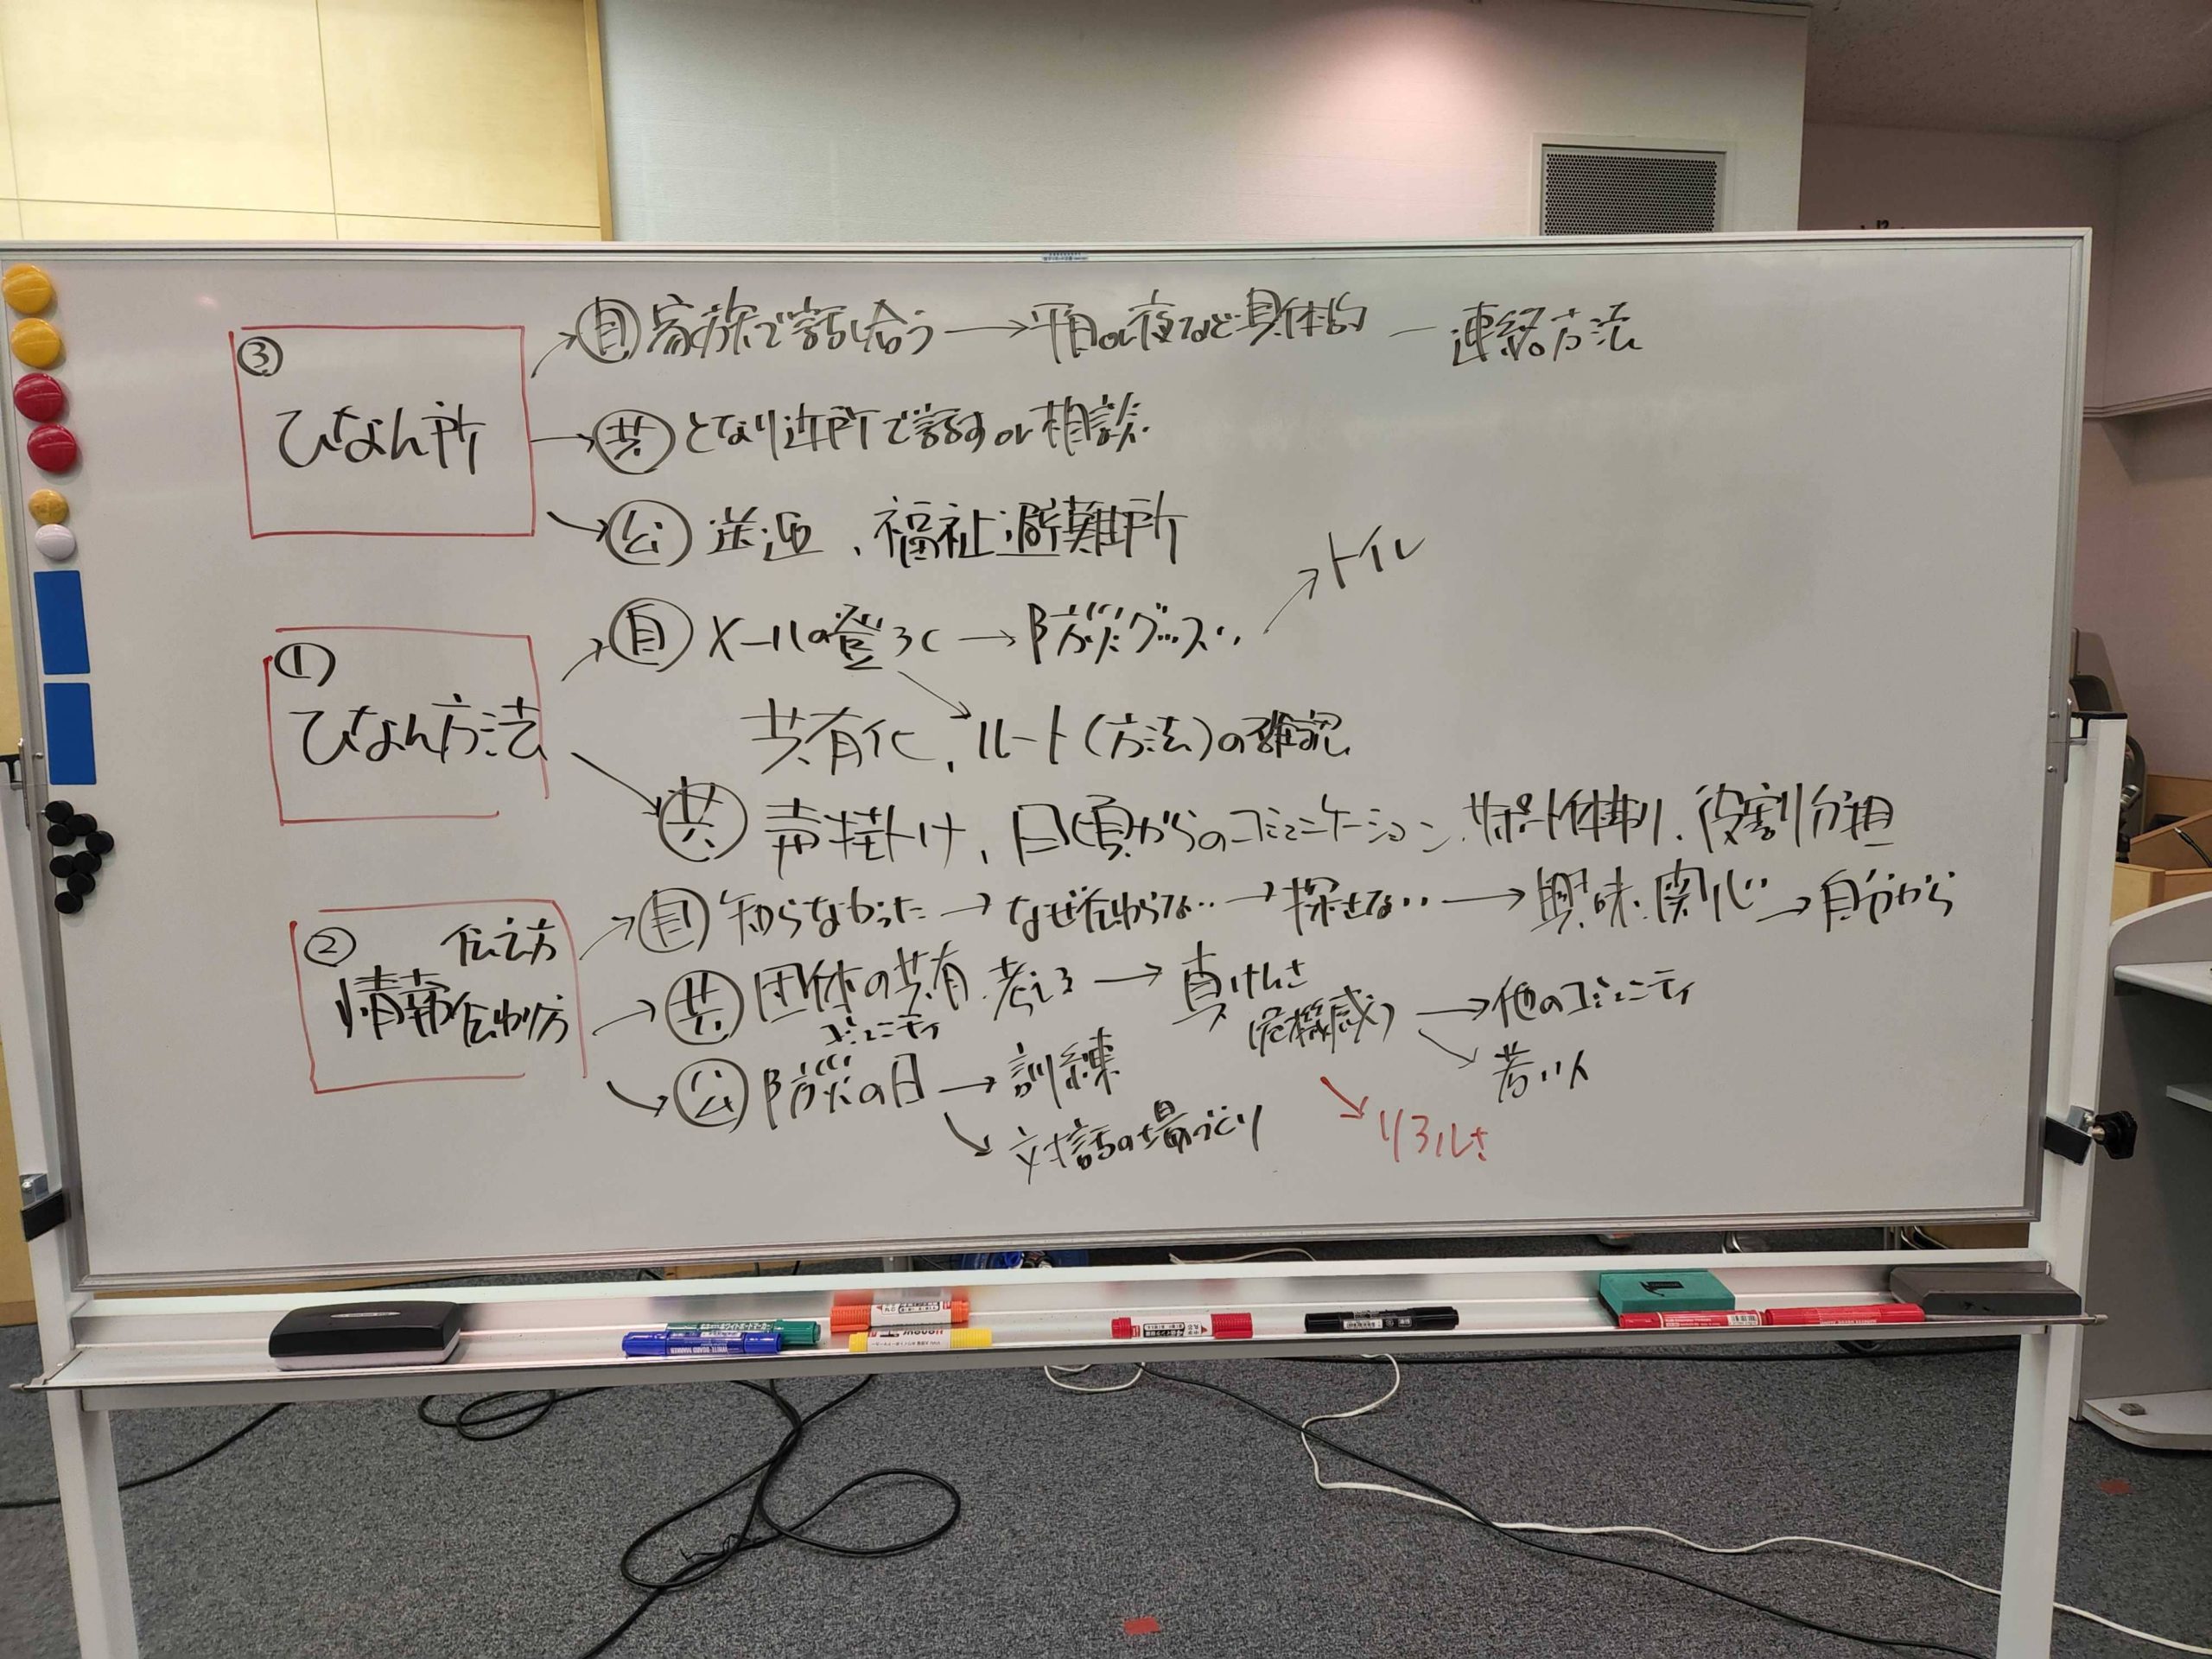 ③
ひなん所
→ 自 家族で話し合う → 平日の夜など具体的 ー 連絡方法
→ 共 となり近所で話すor相談
→ 公 送迎、福祉避難所
①
ひなん方法
→ 自 メールの登ろく → 防災グッズ… → トイレ
共有化、ルート(方法)の確認
→ 共 声掛け、日頃からのコミュニケーション、サポート体制、役割分担
②
伝え方
情報伝わり方
→ 自 知らなかった → なぜ伝わらない‥ → 探せない‥ → 興味・関心 → 自分から
→ 共 団体の共有、考える → 真けんさ
コミュニティ
(危機感) → 他のコミュニティ
→ 若い人
→ 公 防災の日 → 訓練
→ 対話の場づくり
→ リアルさ